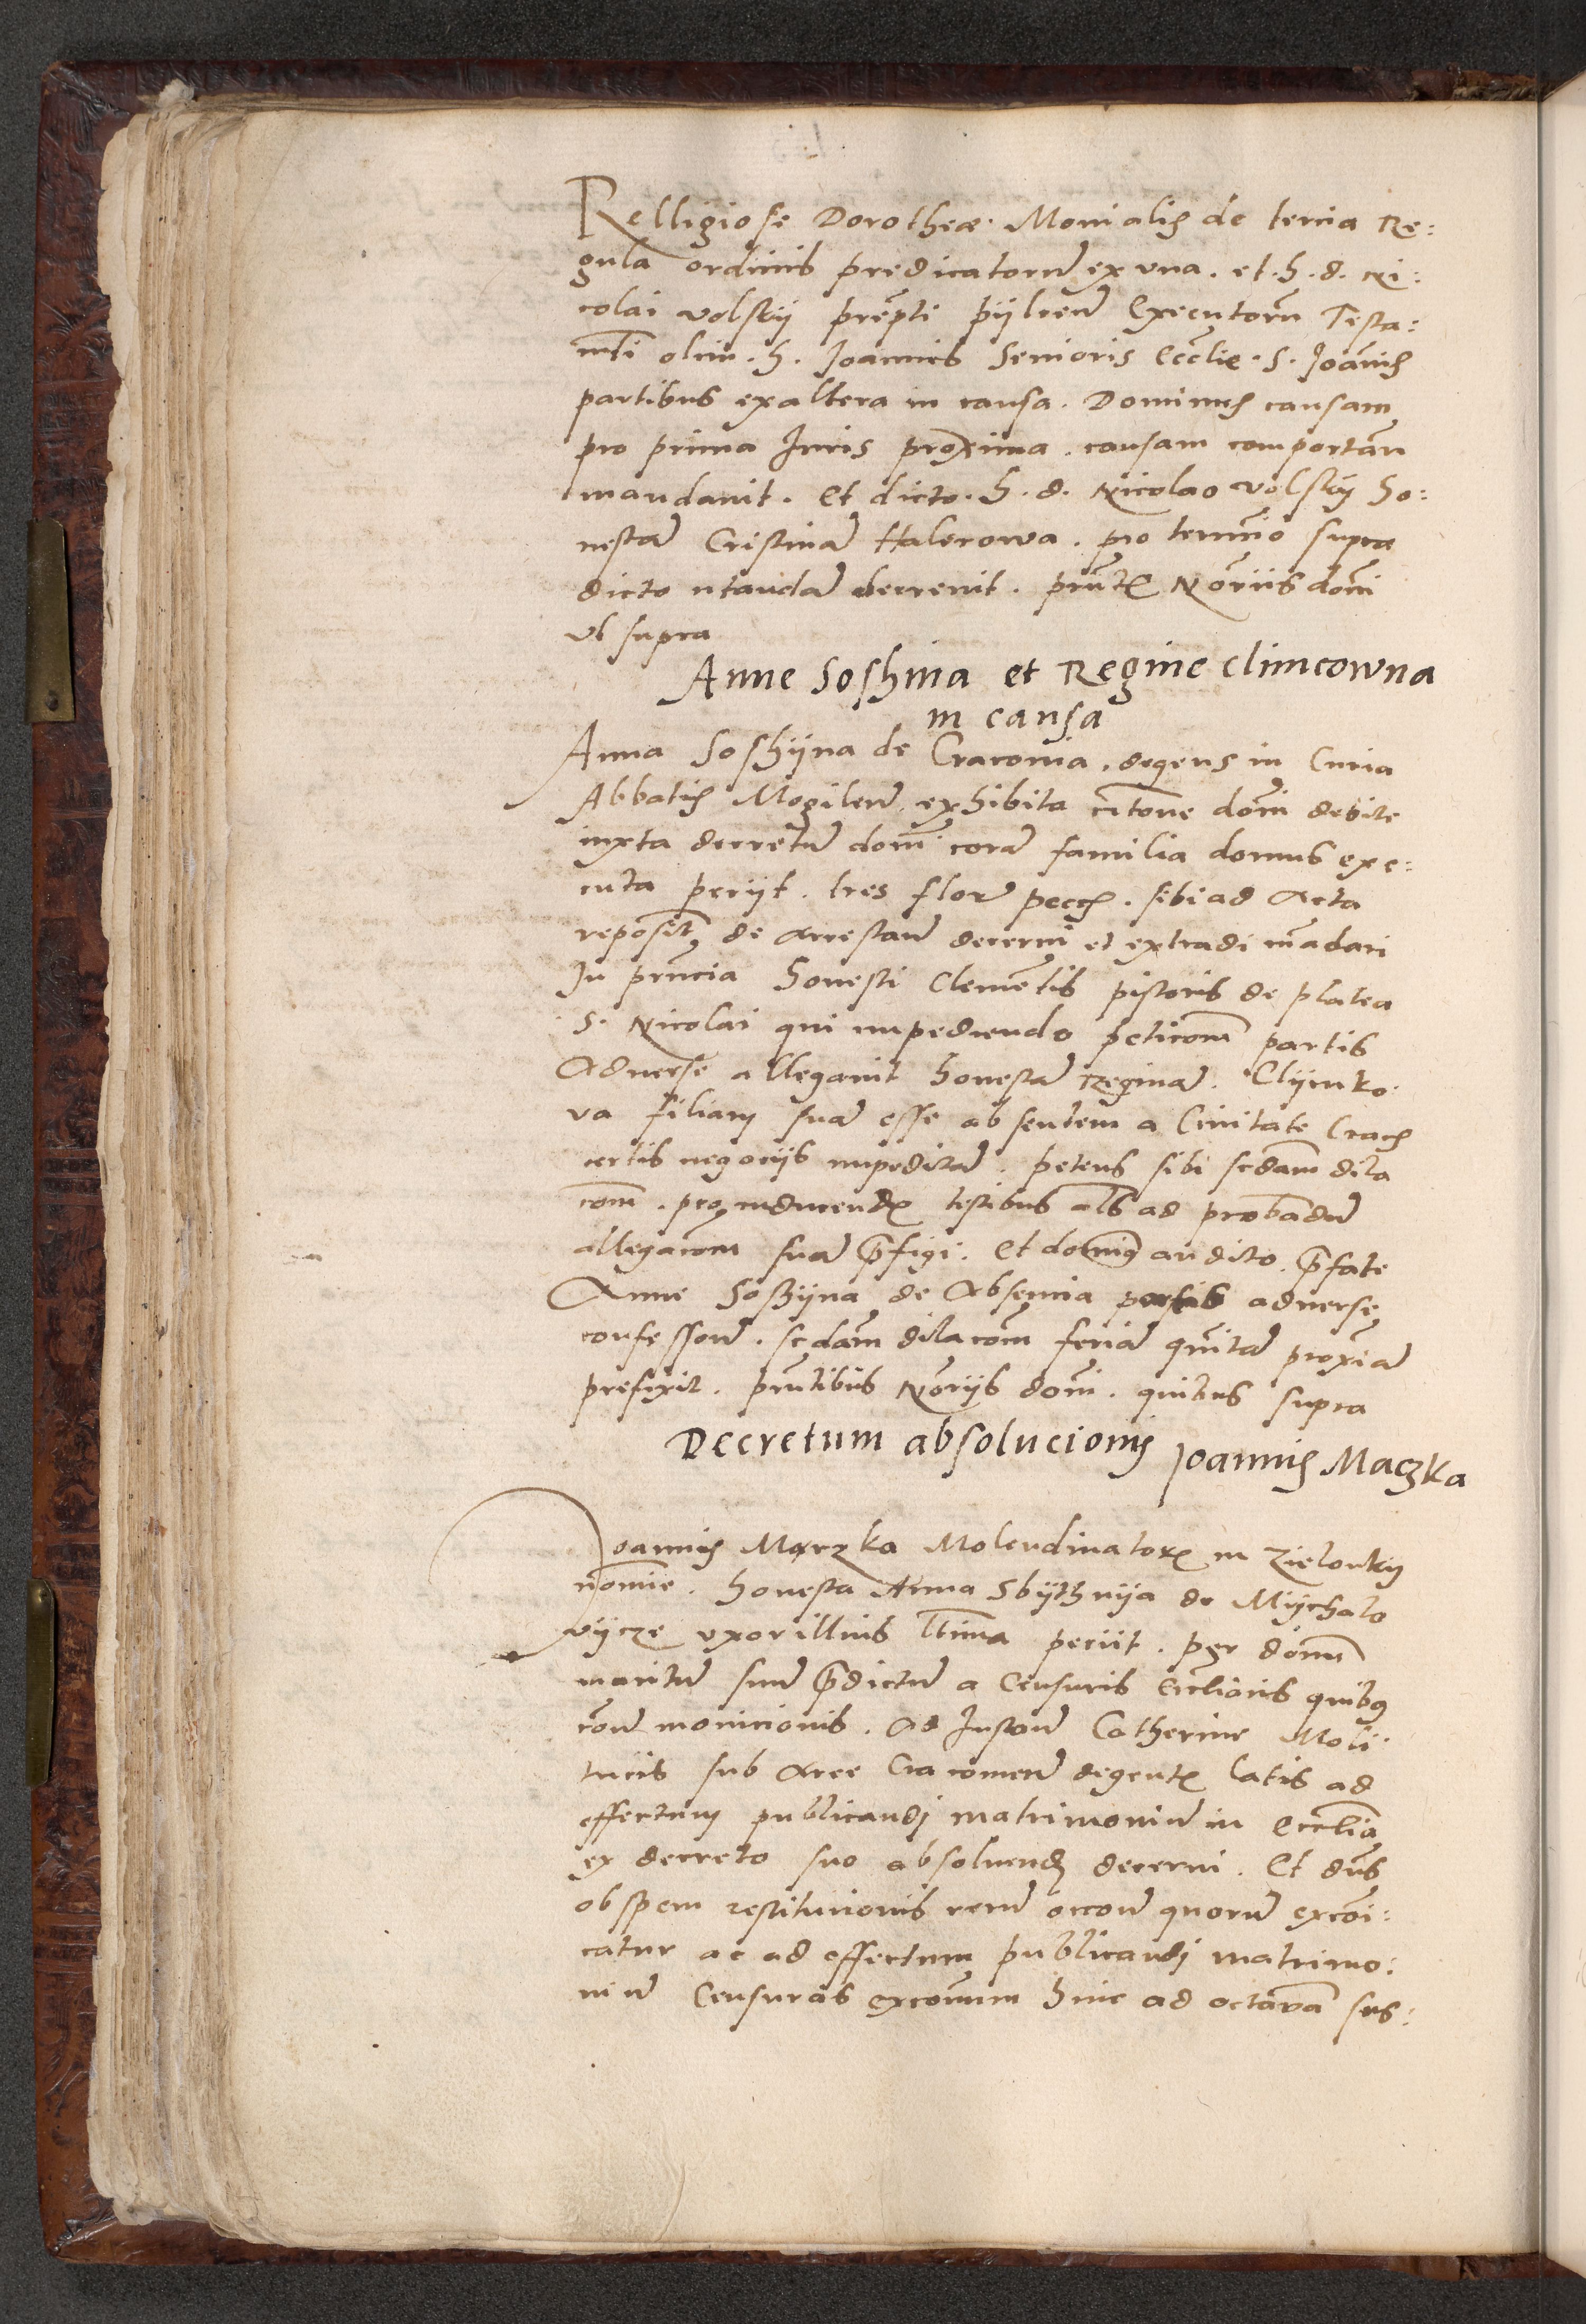 Relligiose Dorotheæ Monialis de tercia Re:
gula ordinis predicatorum ex una . et . h . d . Ni:
colai Volskij prēpti pijlcen̄ Executorū Testa:
mēti olim . h . Joannis Senioris Ecclie . S . Joānis
partibus ex altera in causa . Dominus causam
pro prima Juris proxima . causam comportan̄
mandavit . Et dicto . h . d . Nicolao Volskij ho:
nestā Cristinā Halerowa . pro termīo supra
dicto citandā decrevit . pn̄tē Nōriis domī
vt supra
Anne Soshina et Regine climcowna
in causa
Anna Soshijna de Cracovia . degens in Curia
Abbatis Mogilen̄ exhibita citōne domī debite
iuxta decretū domī corā familia domus exe:
cuta peciit . tres flor̄ pecc . sibi ad Acta
reposit de arrestan̄ decerni et extradi mādari
In pn̄cia honesti Clemētis pistoris de platea
S . Nicolai qui impediendo peticōm partis
Adverse allegavit honestā Reginā . Clijmko
va filiam suā esse absentem a Civitate Crac
certis negociis impeditā . petens sibi scdam dila
com . pro inducendē testibus als ad probādū
allegacōm suā p̄figi . Et domīs audito . p̄fate
Anne Soshijna de Absencia partis adverse
confession̄ . scdam dilacōm feriā quītā proximā
prefixit . pn̄tibus Nōriis domī . quibus supra
Decretum absolucionis Joannis Maczka
Joannis Maczka Molendinatorē in Zielonkij
nomie . honesta Anna Sbijthnija de Mijchalo
vijcze uxor illius ltima peciit . per domū
maritū suū p̄dictū a Censuris Ecclīcis quibus
monicionis . Ad Instan̄ Catherine Moli
tricis sub Arce Cracovien̄ degentē latis ad
effectum publicandi matrimoniū in Ecclīa
ex decreto suo absolvend decerni . Et dn̄s
ob spem restitucionis rerū occon̄ quorū excōi:
catur ac ad effectum publicandi matrimo:
niū Censuras excōnum hinc ad octavā sus: